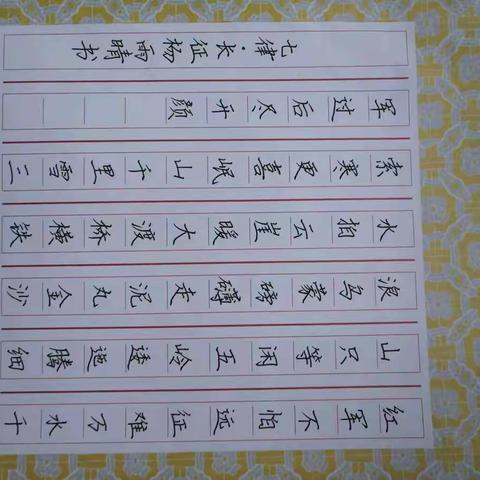 红军不怕远征难万水千
山只等闲五岭逶迤腾细
浪乌蒙磅礴走泥丸金沙
水拍云崖暖大渡桥横铁
索寒更喜岷山千里雪三
军过后尽开颜
七律·长征杨雨晴书